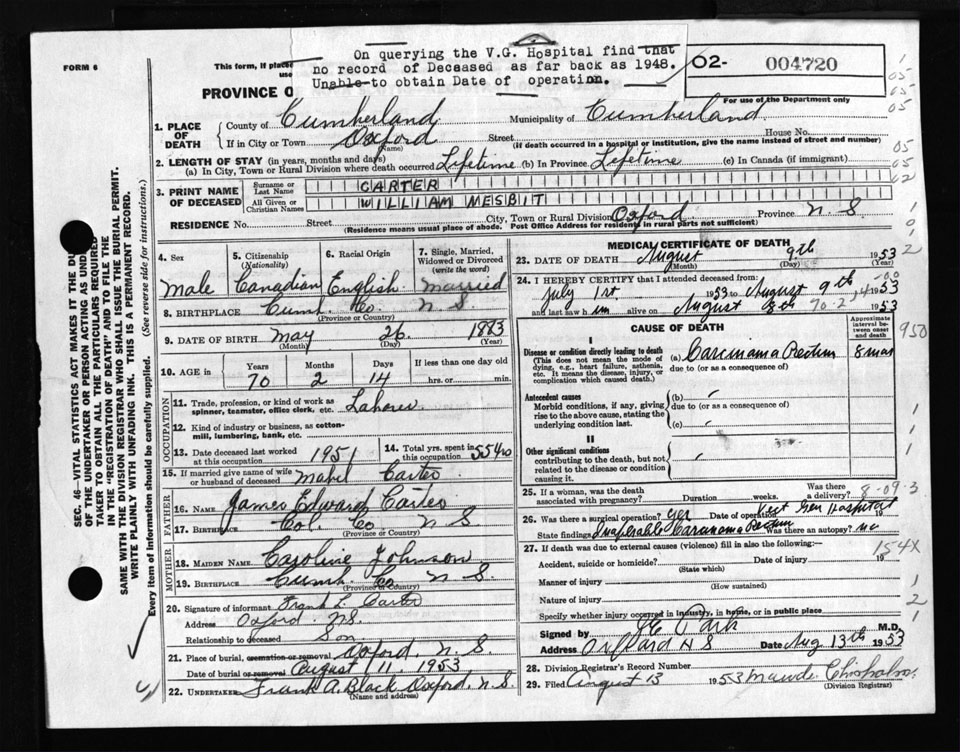 FORM 6
This form, if place
use
PROVINCE O
On querying the V.G. Hospital find that
no record of Deceased as far back as 1948.
Unable to obtain Date of operation.
02- 004720
For use of the Department only
1. PLACE OF DEATH
County of Cumberland Municipality of Cumberland
If in City or Town Oxford (Name) Street House No.
(If death occurred in a hospital or institution, give the name instead of street and number)
2. LENGTH OF STAY (in years, months and days)
(a) In City, Town or Rural Division where death occurred Lifetime (b) In Province Lifetime (c) In Canada (if immigrant)
3. PRINT NAME OF DECEASED
Surname or Last Name CARTER
All Given or Christian Names WILLIAM MESBIT
RESIDENCE No. Street City, Town or Rural Division Oxford Province N.S.
(Residence means usual place of abode. Post Office Address for residents in rural parts not sufficient)
4. Sex Male
5. Citizenship (Nationality) Canadian
6. Racial Origin English
7. Single, Married, Widowed or Divorced (write the word) Married
8. BIRTHPLACE Cumb. Co. N S
(Province or Country)
9. DATE OF BIRTH May 26 1883
(Month) (Day) (Year)
10. AGE in Years 70 Months 2 Days 14 If less than one day old hrs. or min.
OCCUPATION
11. Trade, profession, or kind of work as spinner, teamster, office clerk, etc. Laborer
12. Kind of industry or business, as cotton-mill, lumbering, bank, etc.
13. Date deceased last worked at this occupation 1951
14. Total yrs. spent in this occupation
15. If married give name of wife or husband of deceased Mabel Carter
FATHER
16. Name James Edward Carter
17. Birthplace Col. Co. N S
(Province or Country)
MOTHER
18. MAIDEN NAME Caroline Johnson
19. BIRTHPLACE Cumb. Co. N S.
(Province or Country)
20. Signature of informant Frank L. Carter
Address Oxford N.S.
Relationship to deceased Son
21. Place of burial, cremation or removal Oxford, N. S.
Date of burial or removal August 11, 1953
22. UNDERTAKER Frank A. Black Oxford, N. S.
(Name and address)
MEDICAL CERTIFICATE OF DEATH
23. DATE OF DEATH August 9th 1953
(Month) (Day) (Year)
24. I HEREBY CERTIFY that I attended deceased from:
July 1st 1953 to August 9th 1953
and last saw him alive on August 1953
70-2-14
CAUSE OF DEATH
Approximate interval between onset and death
I
Disease or condition directly leading to death (a) Carcinoma Rectum 8 mos
(This does not mean the mode of dying, e.g., heart failure, asthenia, etc. It means the disease, injury, or complication which caused death.)
due to (or as a consequence of)
Antecedent causes (b)
Morbid conditions, if any, giving rise to the above cause, stating the underlying condition last.
due to (or as a consequence of)
(c)
II
Other significant conditions
contributing to the death, but not related to the disease or condition causing it.
25. If a woman, was the death associated with pregnancy? Duration weeks. Was there a delivery?
8-09-3
26. Was there a surgical operation? yes Date of operation Vict Gen Hospital 19
State findings Inoperable Carcinoma Rectum Was there an autopsy? no
27. If death was due to external causes (violence) fill in also the following:—
154X
Accident, suicide or homicide? Date of injury 19
(State which)
Manner of injury
(How sustained)
Nature of injury
Specify whether injury occurred in industry, in home, or in public place
Signed by M.D.
Address Oxford N S Date Aug 13th 1953
28. Division Registrar's Record Number
29. Filed August 13 1953 Maude Chisholm
(Division Registrar)
SEC. 46—VITAL STATISTICS ACT MAKES IT THE DU
OF THE UNDERTAKER OR PERSON ACTING AS UND
TAKER TO OBTAIN ALL THE PARTICULARS REQUIRED
IN THE "REGISTRATION OF DEATH" AND TO FILE THE
SAME WITH THE DIVISION REGISTRAR WHO SHALL ISSUE THE BURIAL PERMIT.
WRITE PLAINLY WITH UNFADING INK. THIS IS A PERMANENT RECORD.
Every item of information should be carefully supplied. (See reverse side for instructions.)
1
05
05
05
05
05
02
950